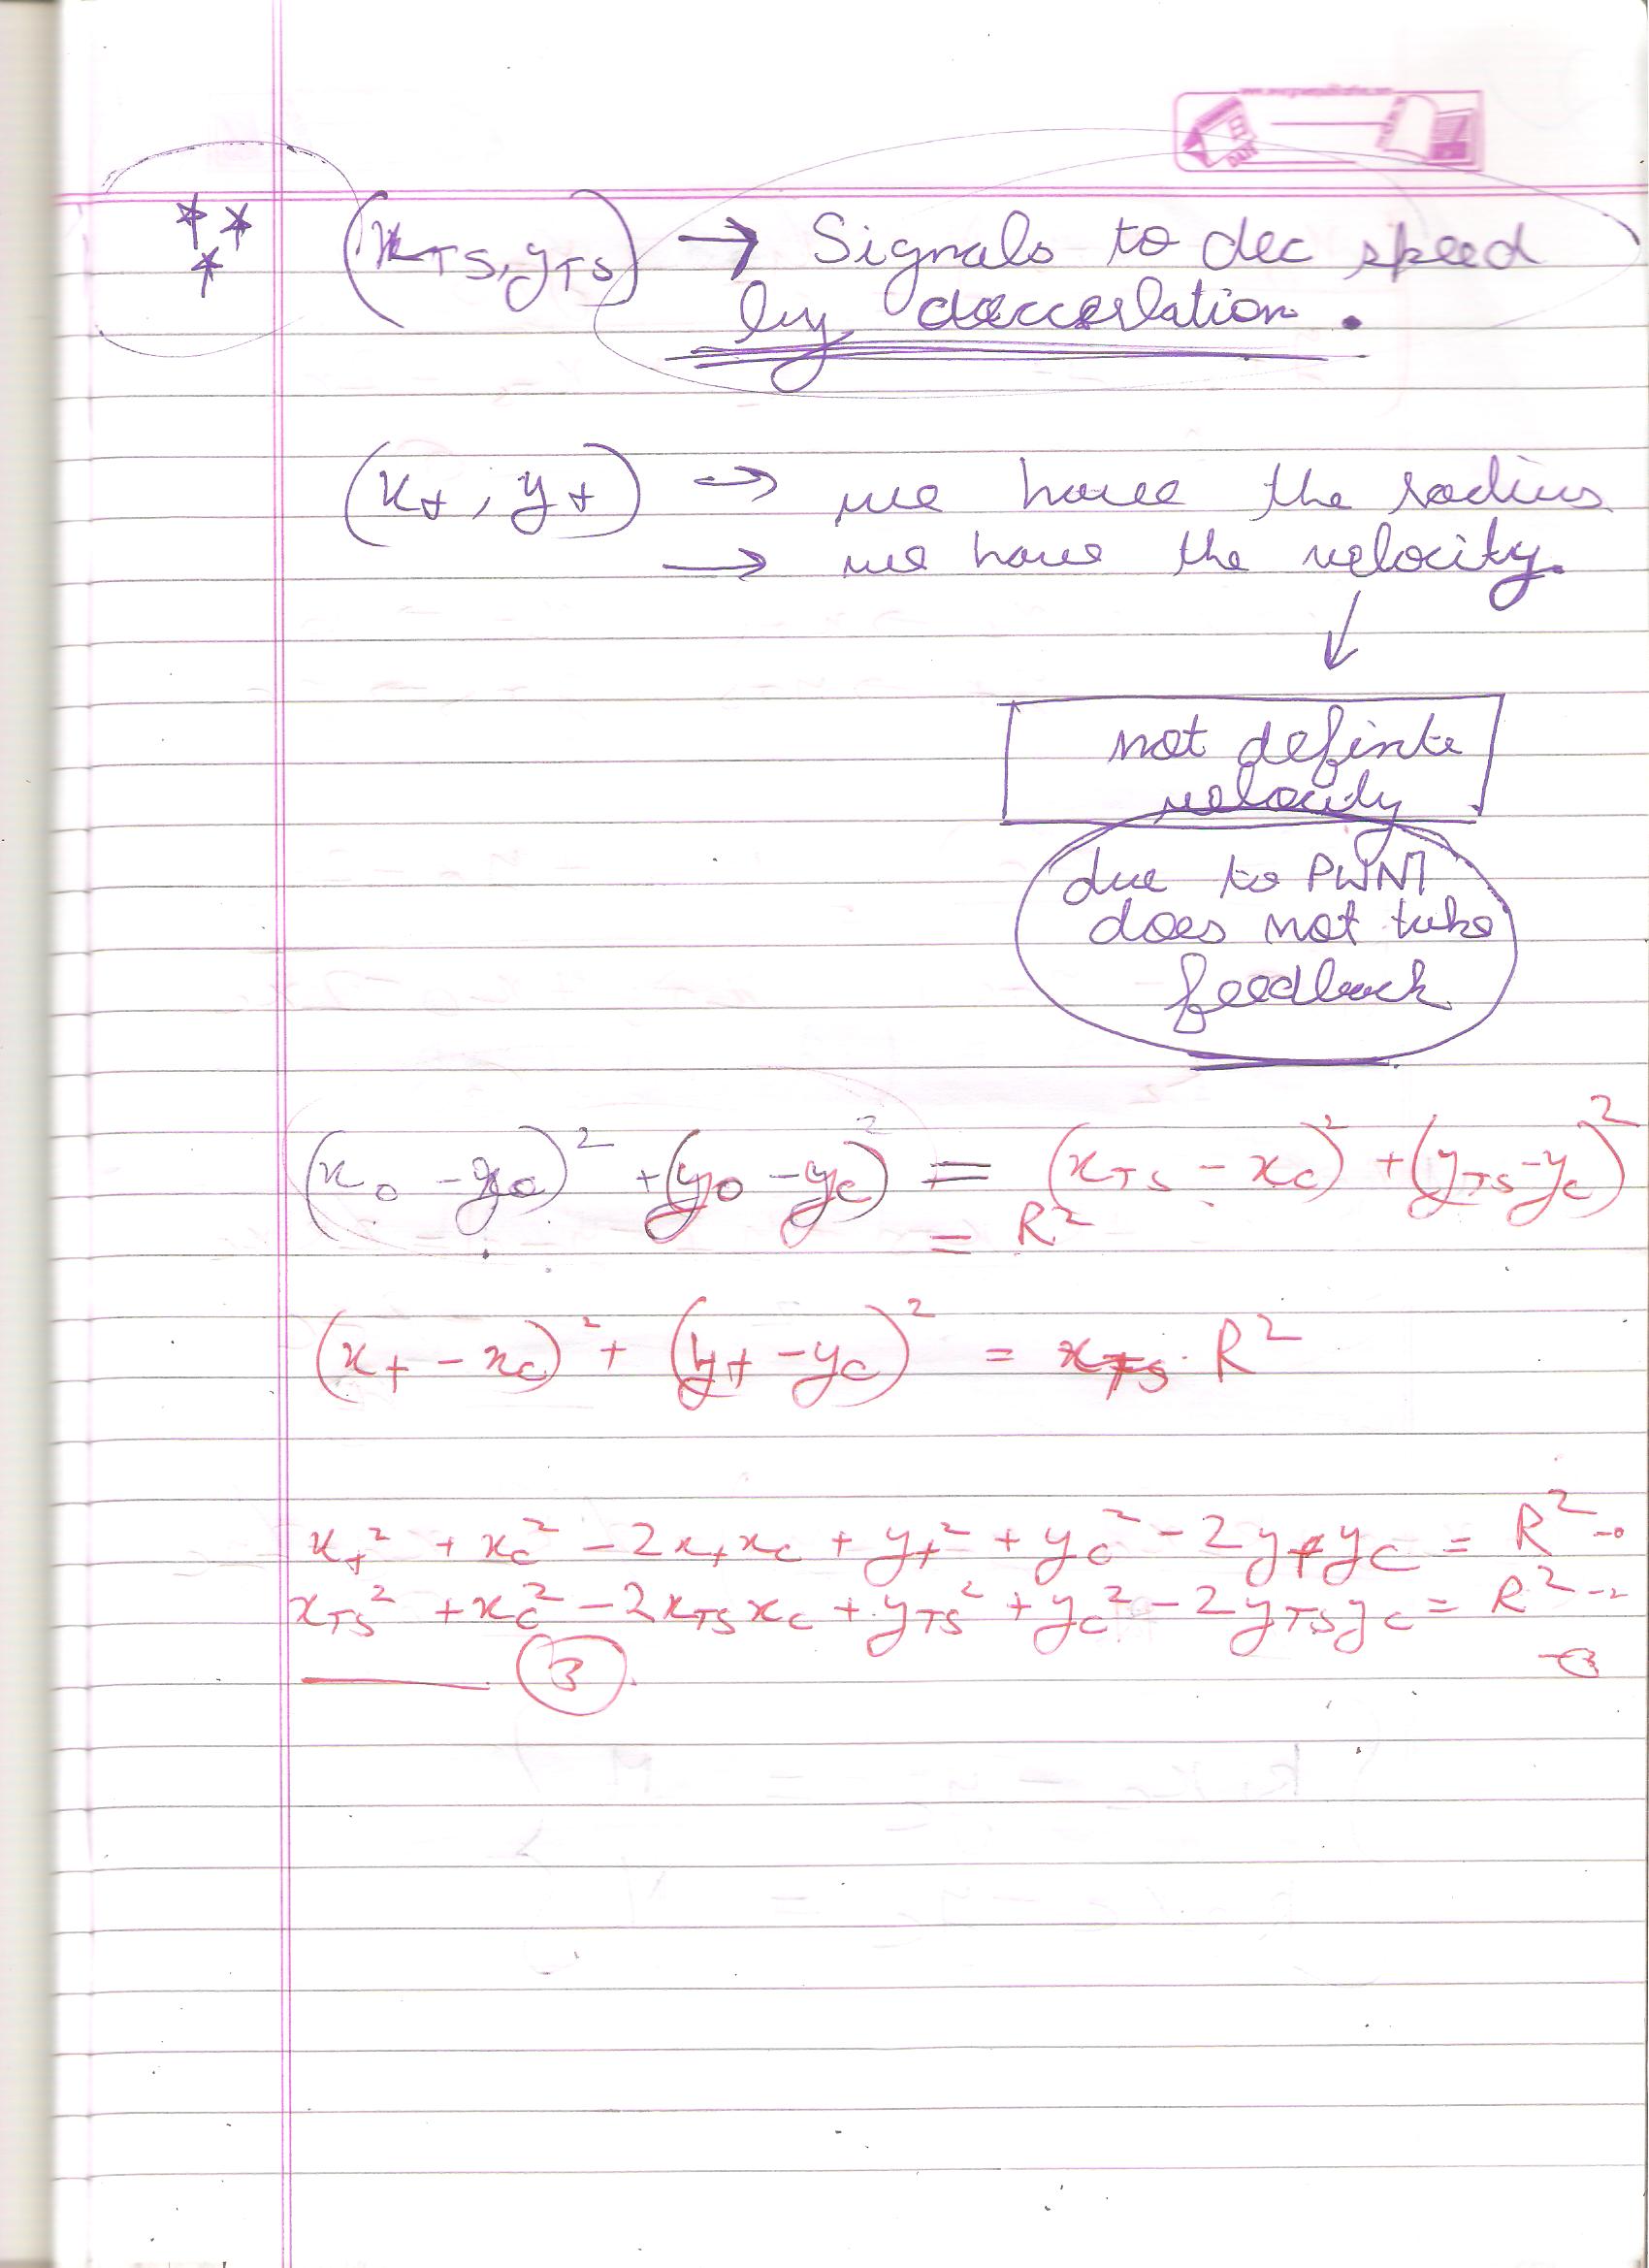 (x_TS, y_TS) → Signals to dec speed
by deccerlation.
(x_t, y_t) → we have the radius
→ we have the velocity.
↓
not definte
velocity
due to PWM
does not take
feedback
(x_0 - x_c)² + (y_0 - y_c)² = (x_TS - x_c)² + (y_TS - y_c)²
= R²
(x_t - x_c)² + (y_t - y_c)² = R²
x_t² + x_c² - 2x_t x_c + y_t² + y_c² - 2y_t y_c = R²
x_TS² + x_c² - 2x_TS x_c + y_TS² + y_c² - 2y_TS y_c = R² -2
3